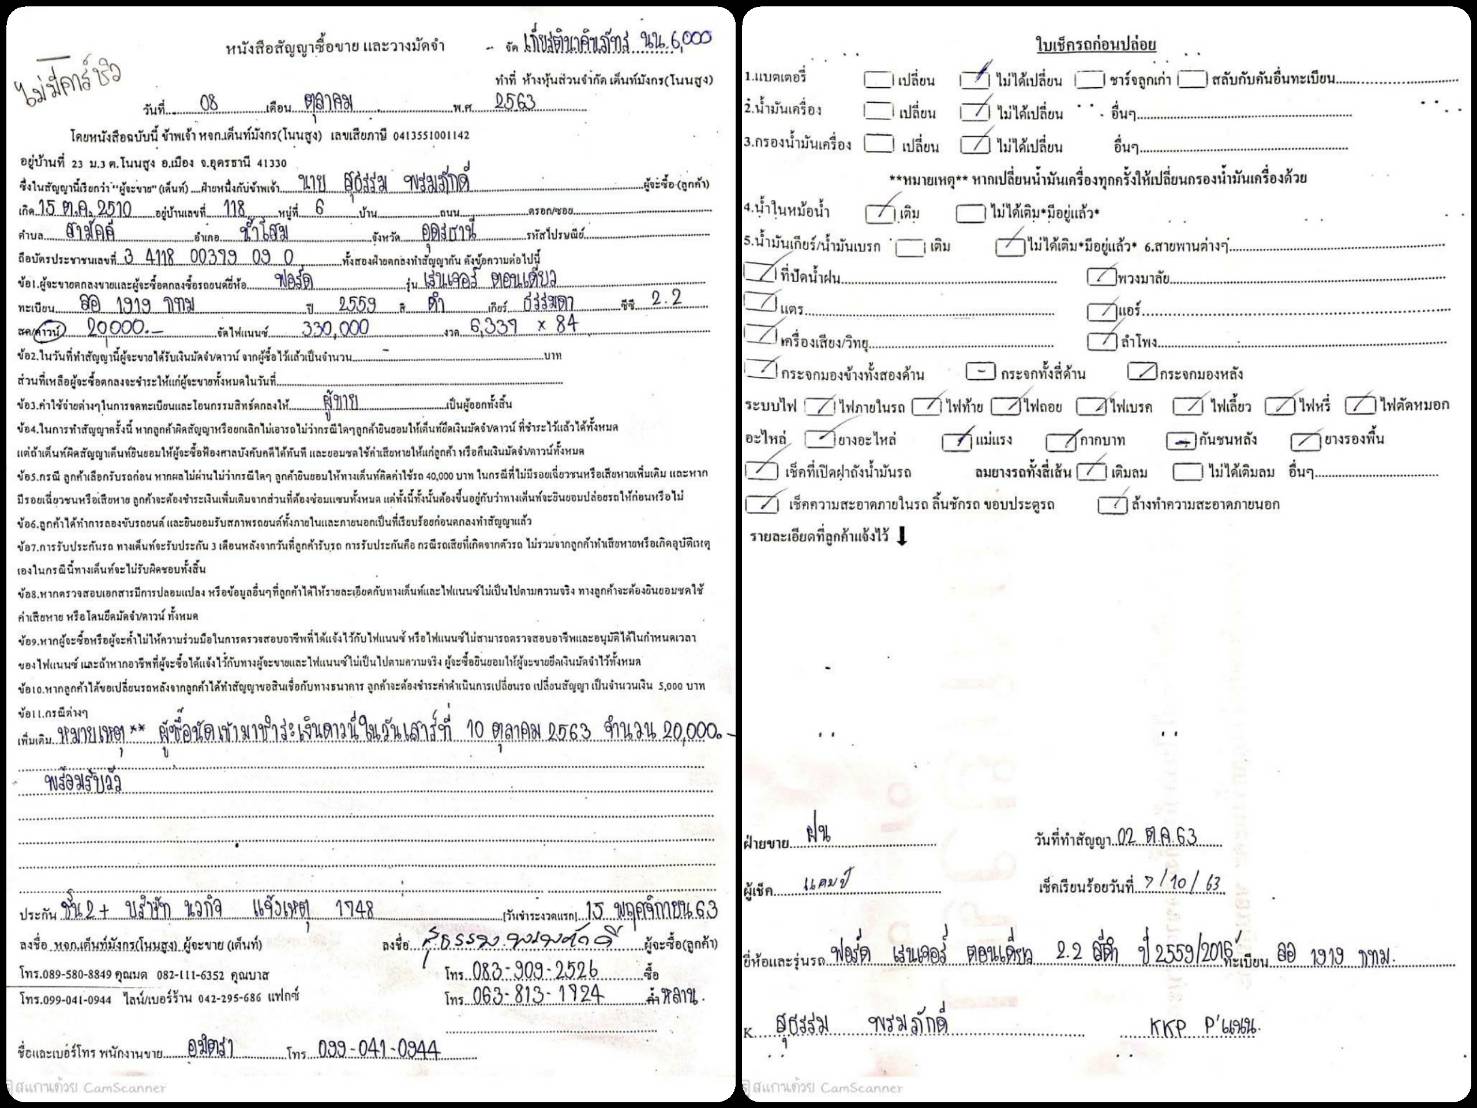 หนังสือสัญญาซื้อขาย และวางมัดจำ
จัด เกียรตินาคินภัทร นน.6,000
ไม่มีคาร์ชิว
ทำที่ ห้างหุ้นส่วนจำกัด เต็นท์มังกร(โนนสูง)
วันที่ 08 เดือน ตุลาคม พ.ศ. 2563
โดยหนังสือฉบับนี้ ข้าพเจ้า หจก.เต็นท์มังกร(โนนสูง) เลขเสียภาษี 0413551001142
อยู่บ้านที่ 23 ม.3 ต.โนนสูง อ.เมือง จ.อุดรธานี 41330
ซึ่งในสัญญานี้เรียกว่า "ผู้จะขาย" (เต็นท์) ฝ่ายหนึ่งกับข้าพเจ้า นาย สุธรรม พรมภักดี ผู้จะซื้อ (ลูกค้า)
เกิด 15 ต.ค. 2510 อยู่บ้านเลขที่ 118 หมู่ที่ 6 บ้าน ถนน ตรอก/ซอย
ตำบล สามัคคี อำเภอ น้ำโสม จังหวัด อุดรธานี รหัสไปรษณีย์
ถือบัตรประชาชนเลขที่ 3 4118 00379 09 0 ทั้งสองฝ่ายตกลงทำสัญญากัน ดังข้อความต่อไปนี้
ข้อ1.ผู้จะขายตกลงขายและผู้จะซื้อตกลงซื้อรถยนต์ยี่ห้อ ฟอร์ด รุ่น เรนเจอร์ ตอนเดียว
ทะเบียน ฮอ 1919 กทม ปี 2559 สี ดำ เกียร์ ธรรมดา ซีซี 2.2
สด/ดาวน์ 20,000.- จัดไฟแนนซ์ 330,000 งวด 6,339 x 84
ข้อ2.ในวันที่ทำสัญญานี้ผู้จะขายได้รับเงินมัดจำ/ดาวน์ จากผู้ซื้อไว้แล้วเป็นจำนวน - บาท
ส่วนที่เหลือผู้จะซื้อตกลงจะชำระให้แก่ผู้จะขายทั้งหมดในวันที่
ข้อ3.ค่าใช้จ่ายต่างๆในการจดทะเบียนและโอนกรรมสิทธิ์ตกลงให้ ผู้ขาย เป็นผู้ออกทั้งสิ้น
ข้อ4.ในการทำสัญญาครั้งนี้ หากลูกค้าผิดสัญญาหรือยกเลิกไม่เอารถไม่ว่ากรณีใดๆลูกค้ายินยอมให้เต็นท์ยึดเงินมัดจำ/ดาวน์ ที่ชำระไว้แล้วได้ทั้งหมด
แต่ถ้าเต็นท์ผิดสัญญาเต็นท์ยินยอมให้ผู้จะซื้อฟ้องศาลบังคับคดีได้ทันที และยอมชดใช้ค่าเสียหายให้แก่ลูกค้า หรือคืนเงินมัดจำ/ดาวน์ทั้งหมด
ข้อ5.กรณี ลูกค้าเลือกรับรถก่อน หากผลไม่ผ่านไม่ว่ากรณีใดๆ ลูกค้ายินยอมให้ทางเต็นท์คิดค่าใช้รถ 40,000 บาท ในกรณีที่ไม่มีรอยเฉี่ยวชนหรือเสียหายเพิ่มเติม และหาก
มีรอยเฉี่ยวชนหรือเสียหาย ลูกค้าจะต้องชำระเงินเพิ่มเติมจากส่วนที่ต้องซ่อมแซมทั้งหมด แต่ทั้งนี้ทั้งนั้นต้องขึ้นอยู่กับว่าทางเต็นท์จะยินยอมปล่อยรถให้ก่อนหรือไม่
ข้อ6.ลูกค้าได้ทำการลองขับรถยนต์ และยินยอมรับสภาพรถยนต์ทั้งภายในและภายนอกเป็นที่เรียบร้อยก่อนตกลงทำสัญญาแล้ว
ข้อ7.การรับประกันรถ ทางเต็นท์จะรับประกัน 3 เดือนหลังจากวันที่ลูกค้ารับรถ การรับประกันคือ กรณีรถเสียที่เกิดจากตัวรถ ไม่รวมจากลูกค้าทำเสียหายหรือเกิดอุบัติเหตุ
เองในกรณีนี้ทางเต็นท์จะไม่รับผิดชอบทั้งสิ้น
ข้อ8.หากตรวจสอบเอกสารมีการปลอมแปลง หรือข้อมูลอื่นๆที่ลูกค้าได้ให้รายละเอียดกับทางเต็นท์และไฟแนนซ์ไม่เป็นไปตามความจริง ทางลูกค้าจะต้องยินยอมชดใช้
ค่าเสียหาย หรือโดนยึดมัดจำ/ดาวน์ ทั้งหมด
ข้อ9.หากผู้จะซื้อหรือผู้จะค้ำไม่ให้ความร่วมมือในการตรวจสอบอาชีพที่ได้แจ้งไว้กับไฟแนนซ์ หรือไฟแนนซ์ไม่สามารถตรวจสอบอาชีพและอนุมัติได้ในกำหนดเวลา
ของไฟแนนซ์ และถ้าหากอาชีพที่ผู้จะซื้อได้แจ้งไว้กับทางผู้จะขายและไฟแนนซ์ไม่เป็นไปตามความจริง ผู้จะซื้อยินยอมให้ผู้จะขายยึดเงินมัดจำไว้ทั้งหมด
ข้อ10.หากลูกค้าได้ขอเปลี่ยนรถหลังจากลูกค้าได้ทำสัญญาขอสินเชื่อกับทางธนาคาร ลูกค้าจะต้องชำระค่าดำเนินการเปลี่ยนรถ เปลี่ยนสัญญา เป็นจำนวนเงิน 5,000 บาท
ข้อ11.กรณีต่างๆ
เพิ่มเติม หมายเหตุ** ผู้ซื้อนัดเข้ามาชำระเงินดาวน์ในวันเสาร์ที่ 10 ตุลาคม 2563 จำนวน 20,000.-
พร้อมรับรถ
ประกัน ชั้น2+ บริษัท นวกิจ แจ้งเหตุ 1748 (วันชำระงวดแรก) 15 พฤศจิกายน 63
ลงชื่อ หจก.เต็นท์มังกร(โนนสูง) ผู้จะขาย (เต็นท์) ลงชื่อ สุธรรม พรมภักดี ผู้จะซื้อ(ลูกค้า)
โทร.089-580-8849 คุณมด 082-111-6352 คุณบาส โทร. 083-909-2526 ซื้อ
โทร.099-041-0944 ไลน์/เบอร์ร้าน 042-295-686 แฟกซ์ โทร. 063-813-1924 ค้ำ หลาน.
ชื่อและเบอร์โทร พนักงานขาย อมิตรา โทร. 099-041-0944
สแกนด้วย CamScanner
ใบเช็ครถก่อนปล่อย
1.แบตเตอรี่ เปลี่ยน ไม่ได้เปลี่ยน ชาร์จลูกเก่า สลับกับคันอื่นทะเบียน
2.น้ำมันเครื่อง เปลี่ยน ไม่ได้เปลี่ยน อื่นๆ
3.กรองน้ำมันเครื่อง เปลี่ยน ไม่ได้เปลี่ยน อื่นๆ
**หมายเหตุ** หากเปลี่ยนน้ำมันเครื่องทุกครั้งให้เปลี่ยนกรองน้ำมันเครื่องด้วย
4.น้ำในหม้อน้ำ เติม ไม่ได้เติม*มีอยู่แล้ว*
5.น้ำมันเกียร์/น้ำมันเบรก เติม ไม่ได้เติม*มีอยู่แล้ว* 6.สายพานต่างๆ
ที่ปัดน้ำฝน พวงมาลัย
แตร แอร์
เครื่องเสียง/วิทยุ ลำโพง
กระจกมองข้างทั้งสองด้าน กระจกทั้งสี่ด้าน กระจกมองหลัง
ระบบไฟ ไฟภายในรถ ไฟท้าย ไฟถอย ไฟเบรค ไฟเลี้ยว ไฟหรี่ ไฟตัดหมอก
อะไหล่ ยางอะไหล่ แม่แรง กากบาท กันชนหลัง ยางรองพื้น
เช็คที่เปิดฝาถังน้ำมันรถ ลมยางรถทั้งสี่เส้น เติมลม ไม่ได้เติมลม อื่นๆ
เช็คความสะอาดภายในรถ ลิ้นชักรถ ขอบประตูรถ ล้างทำความสะอาดภายนอก
รายละเอียดที่ลูกค้าแจ้งไว้
ฝ่ายขาย ฝน วันที่ทำสัญญา 02 ต.ค 63
ผู้เช็ค แคมป์ เช็คเรียบร้อยวันที่ 7/10/63
ยี่ห้อและรุ่นรถ ฟอร์ด เรนเจอร์ ตอนเดียว 2.2 สีดำ ปี 2559/2016 ทะเบียน ฮอ 1919 กทม.
K. สุธรรม พรมภักดี KKP P'แนน.
สแกนด้วย CamScanner